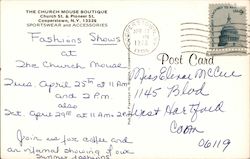 THE CHURCH MOUSE BOUTIQUE
Church St. & Pioneer St.
Cooperstown, N.Y. 13326
SPORTSWEAR and ACCESSORIES
Fashions Shows
at
The Church Mouse
Tues. April 25th at 11 A.M.
and 2 P.M.
also
Sat. April 29th at 11 A.M.
Join us for coffee and
an informal showing of our
Summer fashions
Post Card
Miss Elinor McCue
1145 Blvd
West Hartford
Conn
06119